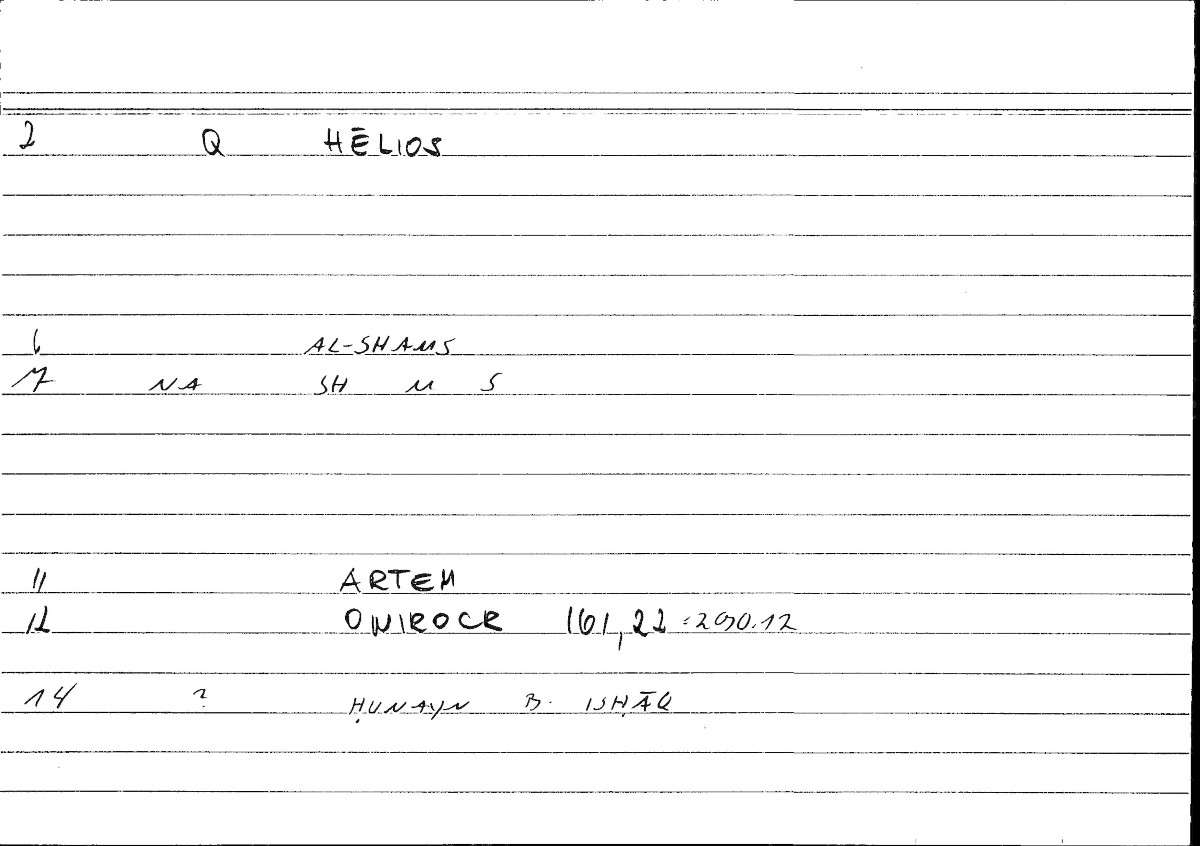 2 Q HĒLIOS
6 AL-SHAMS
7 NA SH M S
11 ARTEM
12 ONIROCR 161,22 = 290.12
14 ? ḤUNAYN B. ISḤĀQ